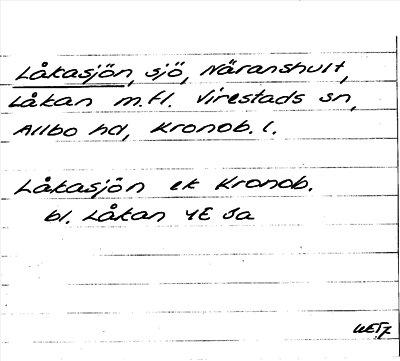 Låkasjön, sjö, Näranshult,
Låkan m.fl. Virestads sn,
Allbo hd, Kronob. l.
Låkasjön ek Kronob.
bl. Låkan 4E Sa